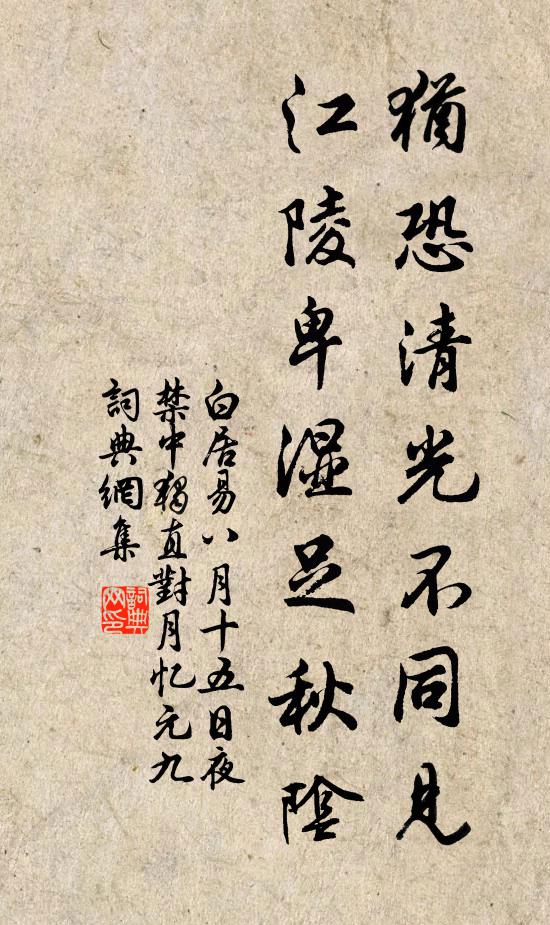 猶恐清光不同見
江陵卑湿足秋陰
白居易八月十五日夜
禁中獨直對月忆元九
詞典網集
詞典網印